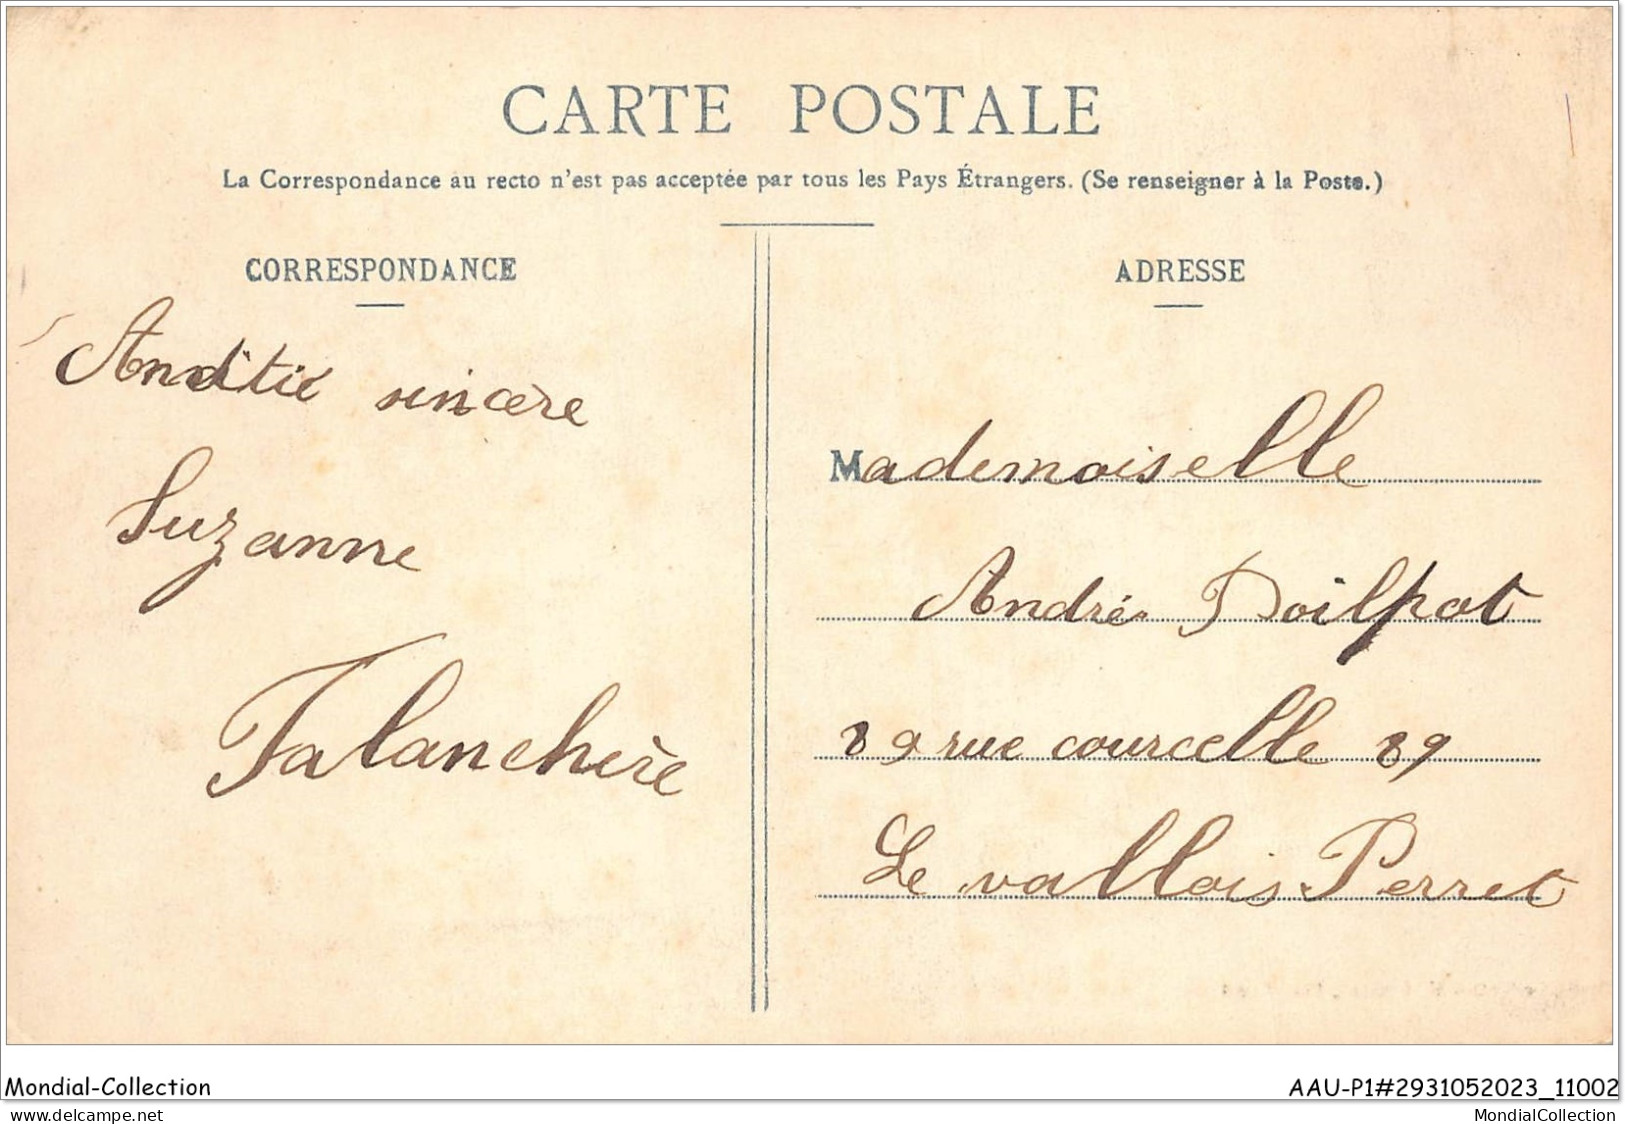 CARTE POSTALE
La Correspondance au recto n'est pas acceptée par tous les Pays Étrangers. (Se renseigner à la Poste.)
CORRESPONDANCE
sincère
Suzanne
Talanchère
ADRESSE
Mademoiselle
André
89 rue courcelle 89
Le vallois Perret
Mondial-Collection
AAU-P1#2931052023_11002
www.delcampe.net
MondialCollection